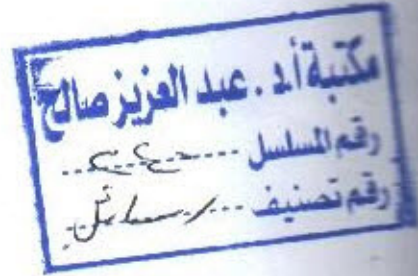 مكتبة أ.د. عبد العزيز صالح
رقم المسلسل
رقم تصنيف